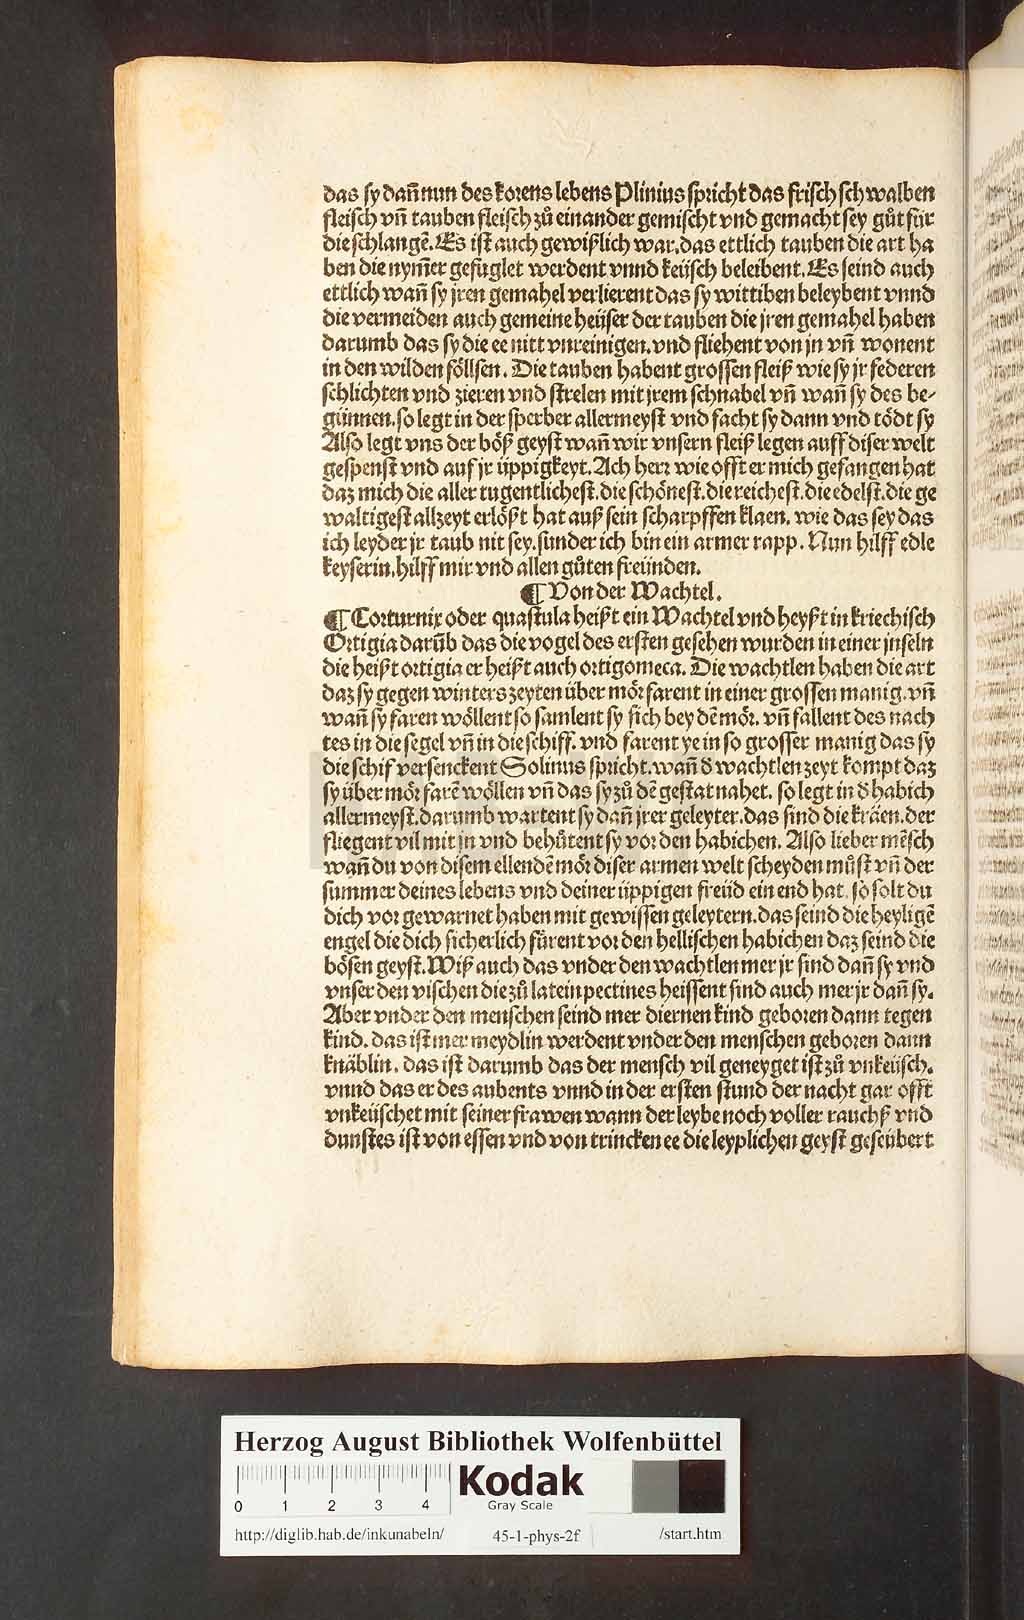 das sy dañ nun des korens lebens Plinius spricht das frisch schwalben
fleisch vñ tauben fleisch zů einander gemischt vnd gemacht sey gůt für
die schlangẽ. Es ist auch gewißlich war. das ettlich tauben die art ha
ben die nym̃er gefuglet werdent vnnd keüsch beleibent. Es seind auch
ettlich wañ sy jren gemahel verlierent das sy wittiben beleybent vnnd
die vermeiden auch gemeine heüser der tauben die jren gemahel haben
darumb das sy die ee nitt vnreinigen. vnd fliehent von jn vñ wonent
in den wilden föllsen. Die tauben habent grossen fleiß wie sy jr federen
schlichten vnd zieren vnd strelen mit jrem schnabel vñ wañ sy des be-
günnen. so legt in der sperber allermeyst vnd facht sy dann vnd tödt sy
Also legt vns der böß geyst wañ wir vnsern fleiß legen auff diser welt
gespenst vnd auf jr üppigkeyt. Ach herr wie offt er mich gefangen hat
daz mich die aller tugentlichest. die schönest. die reichest. die edelst. die ge
waltigest allzeyt erlößt hat auß sein scharpffen klaen. wie das sey das
ich leyder jr taub nit sey. sunder ich bin ein armer rapp. Nun hilff edle
keyserin. hilff mir vnd allen gůten freünden.
¶ Von der Wachtel.
¶ Corturnix oder quastula heißt ein Wachtel vnd heyßt in kriechisch
Ortigia darũb das die vogel des ersten gesehen wurden in einer jnseln
die heißt ortigia er heißt auch ortigomeca. Die wachtlen haben die art
daz sy gegen winterszeyten über mör farent in einer grossen manig. vñ
wañ sy faren wöllent so samlent sy sich bey dẽ mör. vñ fallent des nach
tes in die segel vñ in die schiff. vnd farent ye in so grosser manig das sy
die schif versenckent Solinus spricht. wañ d wachtlen zeyt kompt daz
sy über mör farẽ wöllen vñ das sy zů dẽ gestat nahet. so legt in d habich
allermeyst. darumb wartent sy dañ jrer geleyter. das sind die kräen. der
fliegent vil mit jn vnd behütent sy vor den habichen. Also lieber mẽsch
wañ du von disem ellendẽ mör diser armen welt scheyden můst vñ der
summer deines lebens vnd deiner üppigen freüd ein end hat. so solt du
dich vor gewarnet haben mit gewissen geleytern. das seind die heyligẽ
engel die dich sicherlich fürent vor den hellischen habichen daz seind die
bösen geyst. Wiß auch das vnder den wachtlen mer jr sind dañ sy vnd
vnser den vischen die zů latein pectines heissent sind auch mer jr dañ sy.
Aber vnder den menschen seind mer diernen kind geboren dann tegen
kind. das ist mer meydlin werdent vnder den menschen geboren dann
knäblin. das ist darumb das der mensch vil geneyget ist zů vnkeüsch.
vnnd das er des aubents vnnd in der ersten stund der nacht gar offt
vnkeüschet mit seiner frawen wann der leybe noch voller rauchß vnd
dunstes ist von essen vnd von trincken ee die leyplichen geyst geseübert
Herzog August Bibliothek Wolfenbüttel
0 1 2 3 4
Kodak
Gray Scale
http://diglib.hab.de/inkunabeln/ 45-1-phys-2f /start.htm